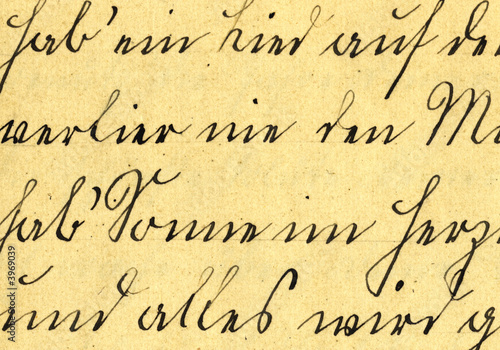 hab' ein Lied auf de
verlier nie den M
hab' Sonne im Herz
und alles wird g
Adobe Stock | #3969039